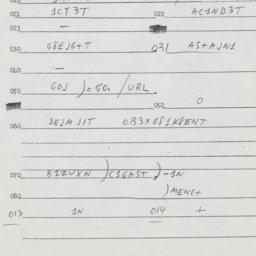 021 1CT3T 022 AC1ND3T
023 –
030 G8EJG+T 031 AS+AJN1
040 –
050 GOJ )=GO. / URL.
052 O
060 DEJMJIT OB3XG81K8ENT
070 B1ZUXN )C1GAST.)-1N
080 )MENC+
013 1N 014 +